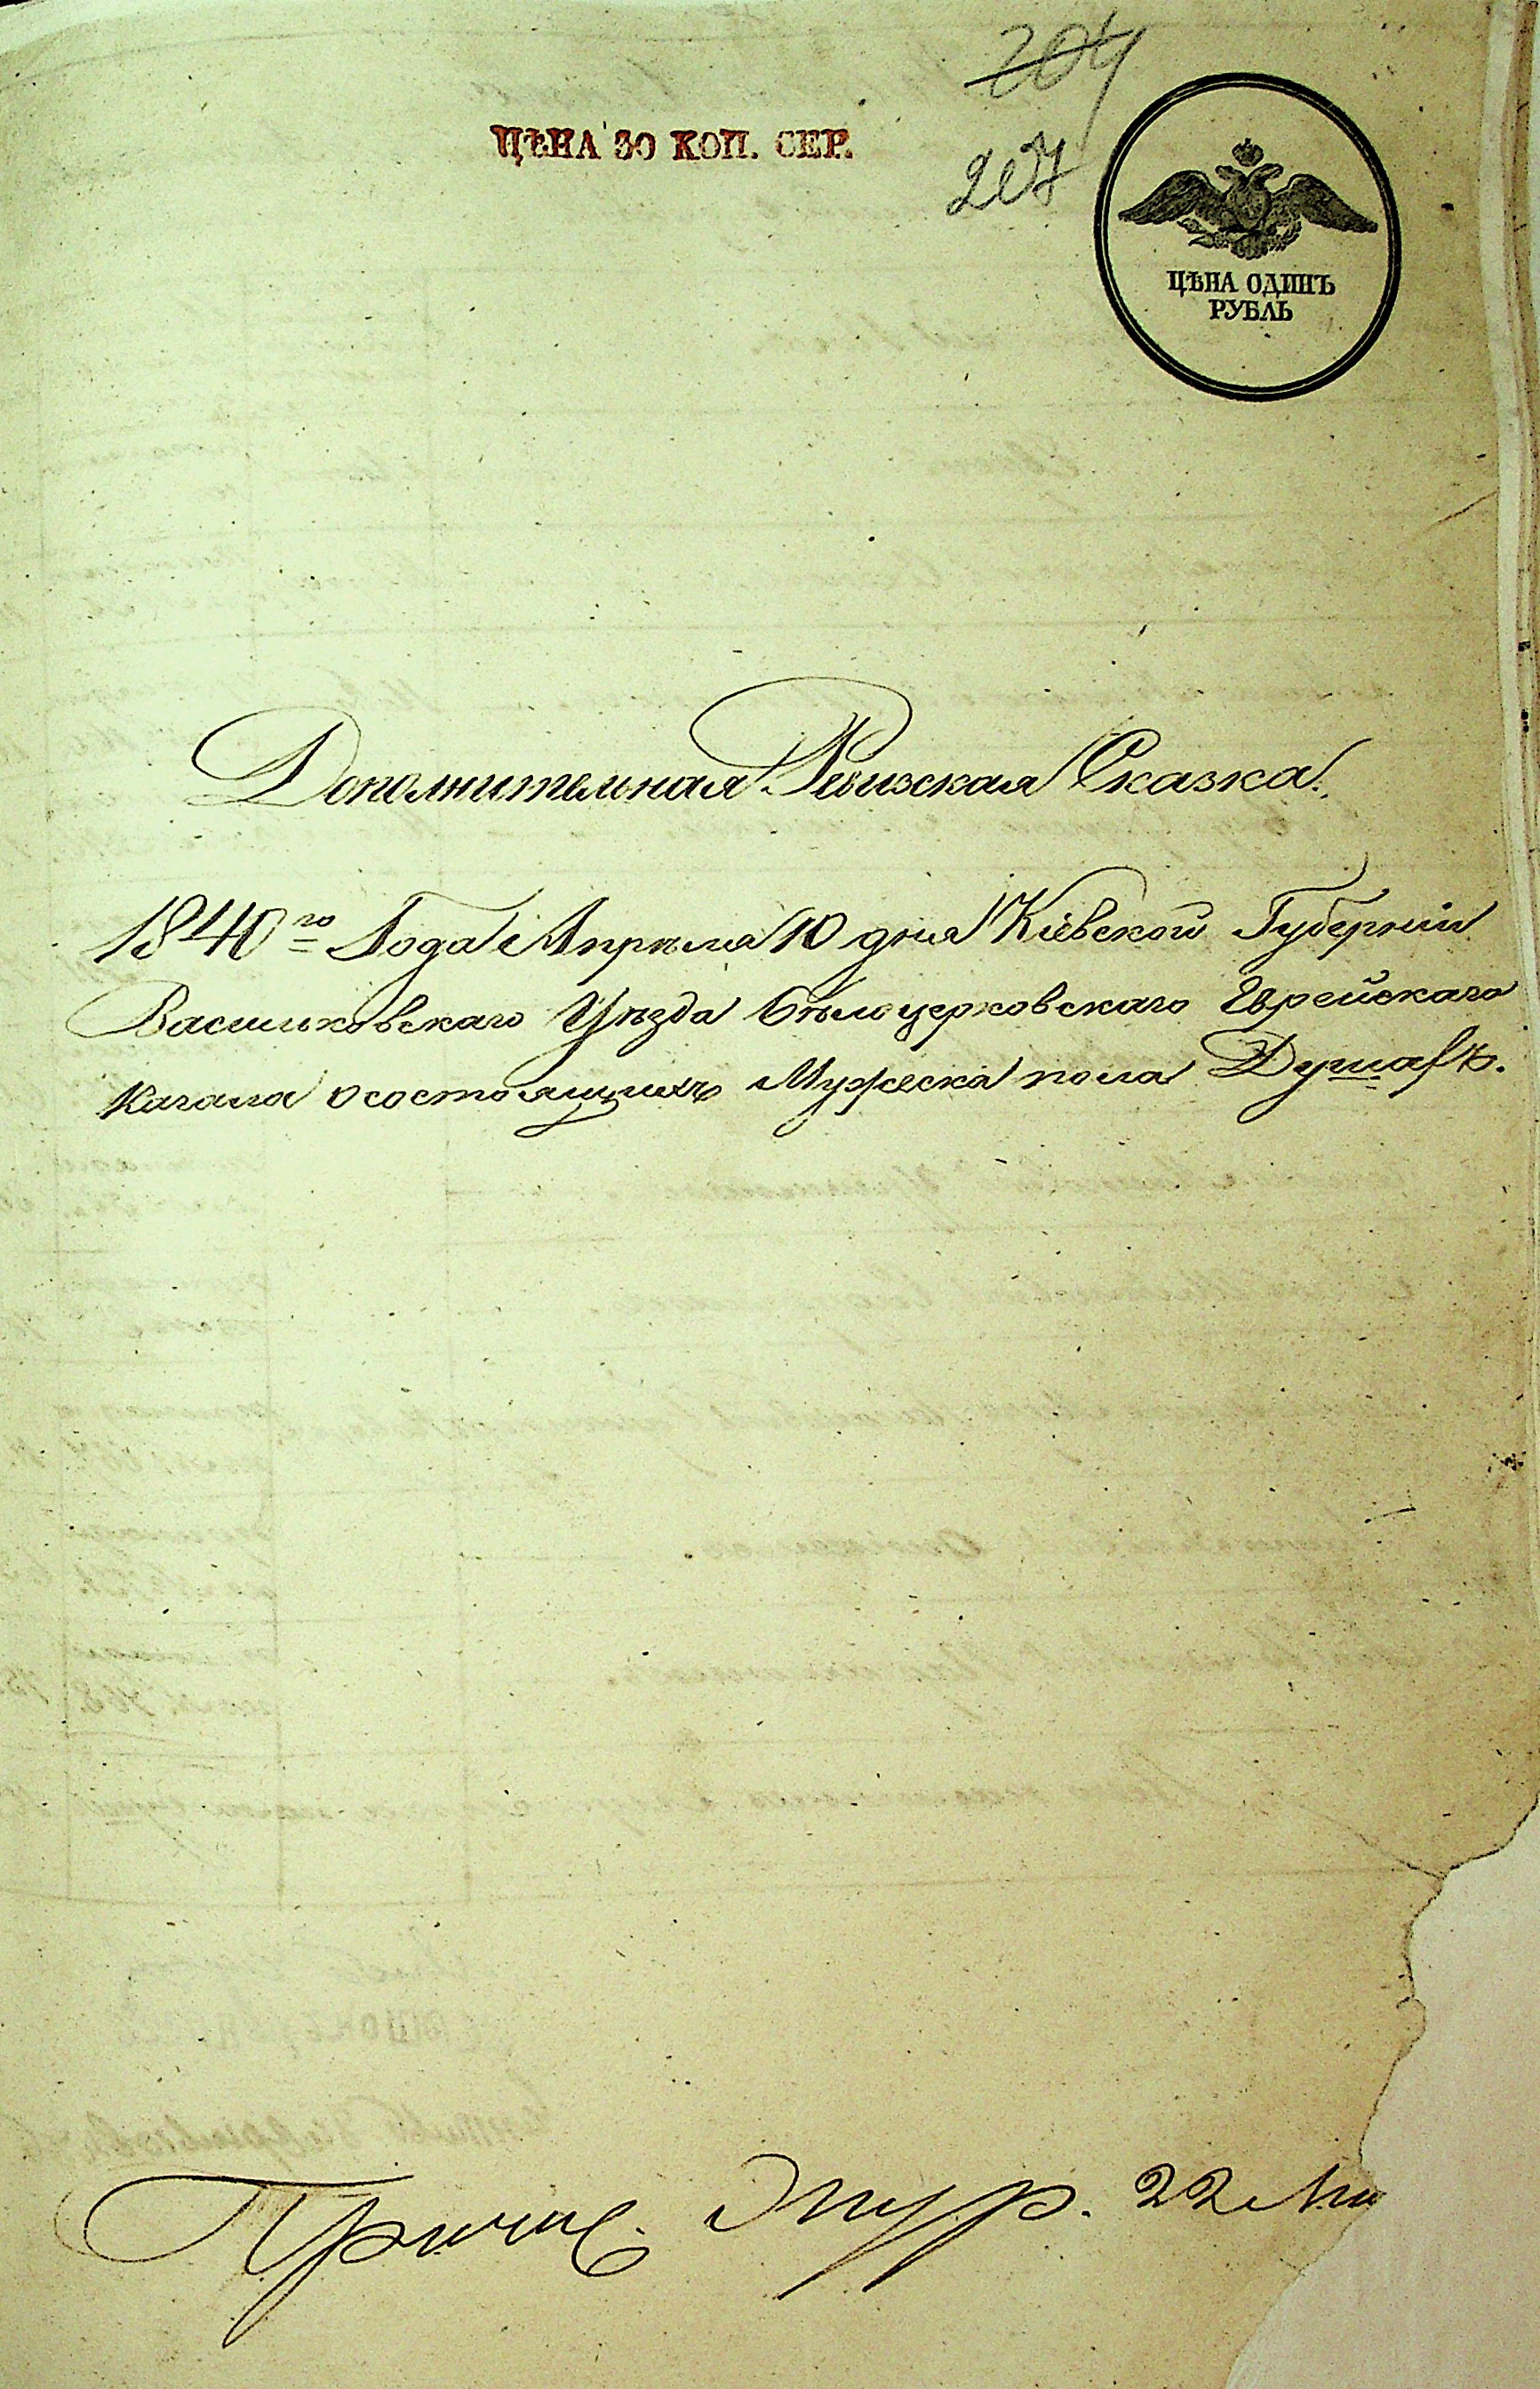 204
207
ЦѢНА 30 КОП. СЕР.
ЦѢНА ОДИНЪ
РУБЛЬ
Дополнительная Ревизская Сказка.
1840го Года Апрѣля 10 дня Кіевской Губерніи
Васильковскаго Уѣзда Бѣлоцерковскаго Еврейскаго
Кагала о состоящихъ Мужеска пола Душахъ.
22